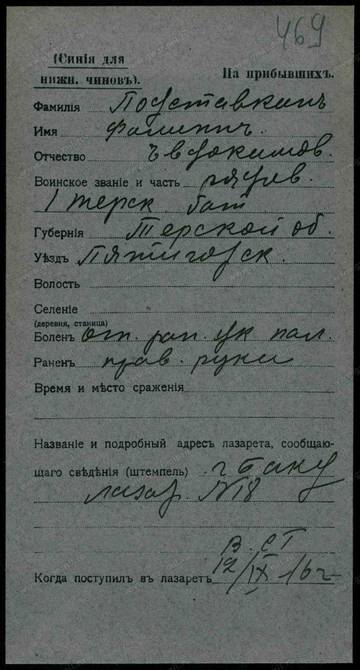 469
(Синія для
нижн. чиновъ).
На прибывшихъ.
Фамилія Подставкинъ
Имя
Отчество Евдокимов.
Воинское званіе и часть рядов.
1 терск бат
Губернія Терской об.
Уѣздъ Пятигорск.
Волость
Селеніе
(деревня, станица)
Боленъ огн. ран. ук. пал.
Раненъ прав. руки
Время и мѣсто сраженія
Названіе и подробный адресъ лазарета, сообщаю-
щаго свѣдѣнія (штемпель) г Баку
лазар. №18
В. СТ
Когда поступил въ лазаретъ 12/IX 16 г